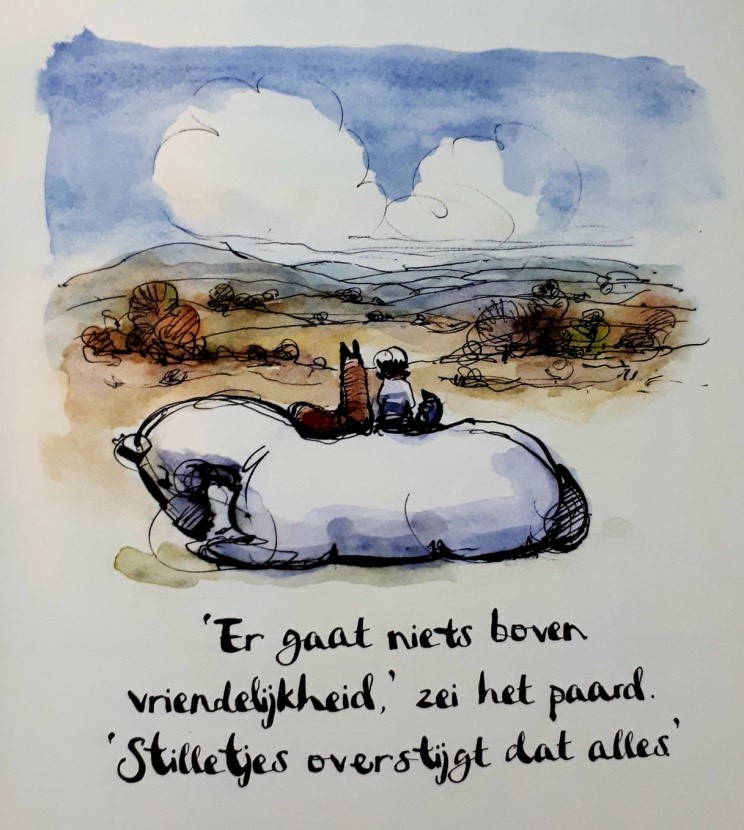 'Er gaat niets boven
vriendelijkheid,' zei het paard.
'Stilletjes overstijgt dat alles'